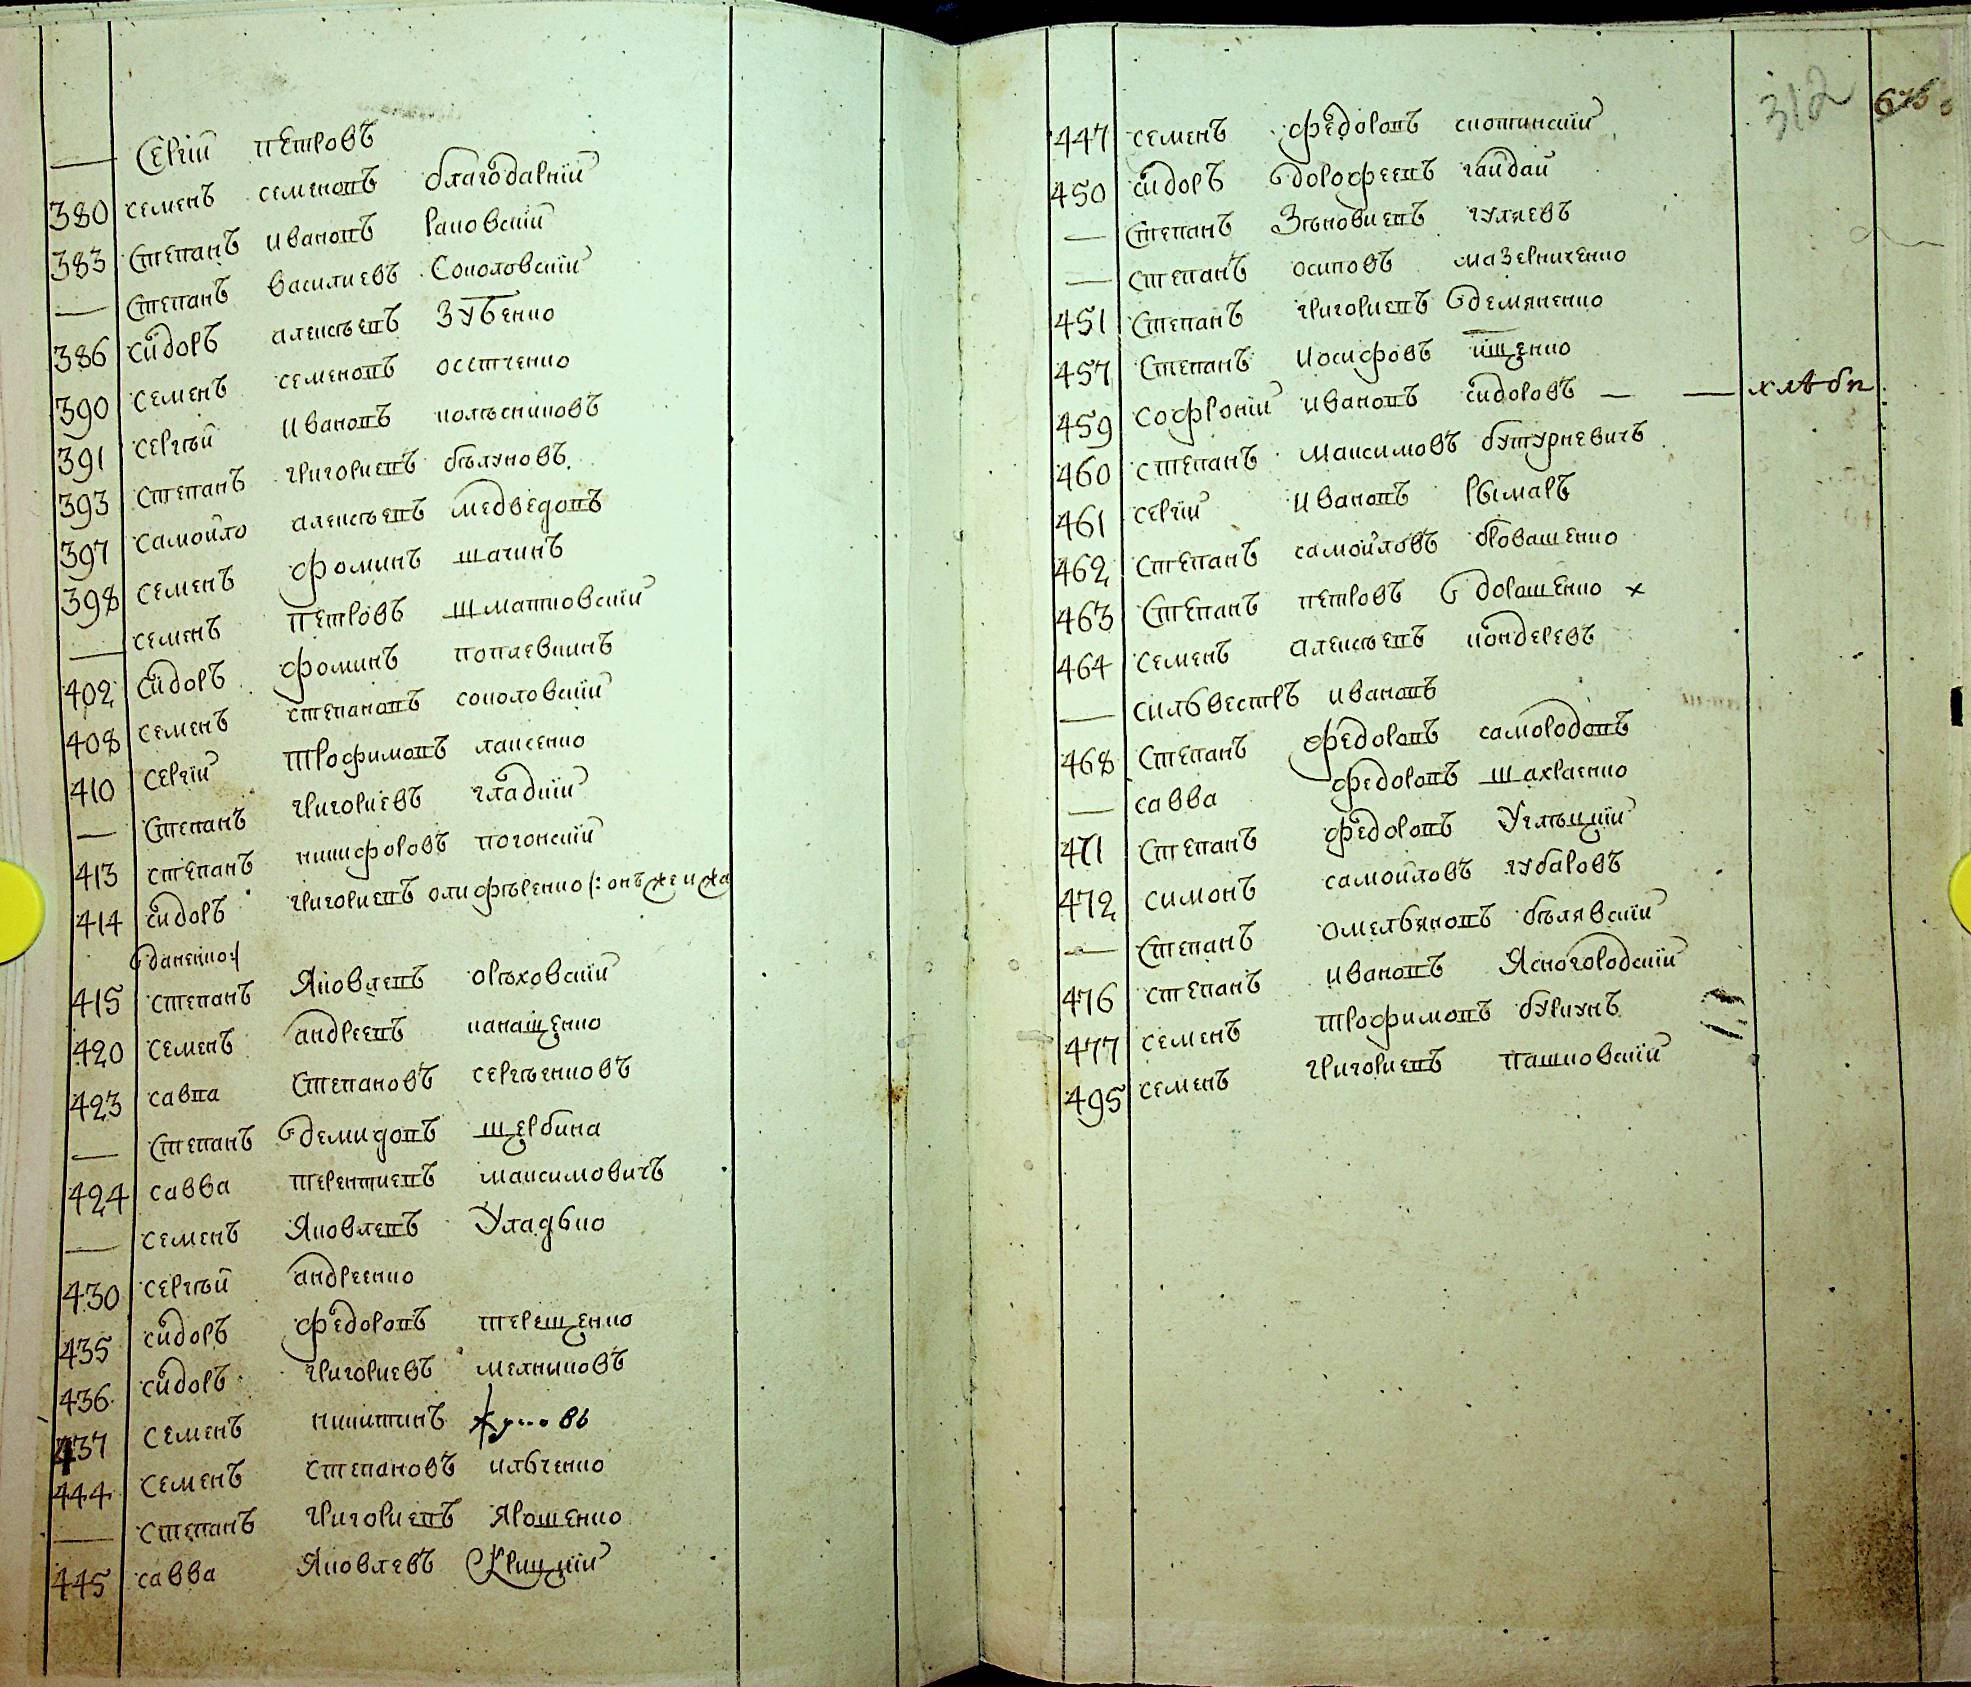 — Сергій петровъ
380 семенъ семеновъ благодарній
383 Степанъ ивановъ раковскій
— Степанъ василиевъ Соколовскій
386 сидоръ алексѣевъ Зубенко
390 семенъ семеновъ осетченко
391 сергѣй ивановъ колѣсниковъ
393 степанъ григориевъ бѣлуковъ
397 самойло алексѣевъ медведовъ
398 семенъ фоминъ шагинъ
— семенъ петровъ шматковскій
402 сидоръ фоминъ поплевкинъ
408 семенъ степановъ соколовскій
410 сергій трофимовъ лаксенко
— Степанъ григориевъ гладкій
413 степанъ никифоровъ погонскій
414 сидоръ григориевъ олифѣренко (: онъ же и ка
даненко :)
415 степанъ Яковлевъ орѣховскій
420 семенъ андреевъ канащенко
423 савва Степановъ сергѣенковъ
— Степанъ демидовъ щербина
424 савва терентиевъ максимовичъ
— семенъ Яковлевъ Уладько
430 сергѣй андреенко
435 сидоръ федоровъ терещенко
436 сидоръ григориевъ мелниковъ
437 семенъ никитинъ
444 семенъ степановъ илбченко
— степанъ григориевъ Ярошенко
445 савва Яковлевъ Крицкій
312
447 семенъ федоровъ скотинскій
450 сидоръ дорофеевъ гайдай
— Степанъ Зѣновиевъ гуляевъ
— степанъ осиповъ мазерниченко
451 Степанъ григориевъ демяненко
457 Степанъ иосифовъ ищенко
459 софроній ивановъ сидоровъ — — хлѣбп
460 степанъ максимовъ бутурневичъ
461 сергій ивановъ рымаръ
462 степанъ самойловъ бровашенко
463 Степанъ петровъ дорошенко ×
464 семенъ алексѣевъ кондеревъ
— силбвестръ ивановъ
468 Степанъ федоровъ самородовъ
— савва федоровъ шахраенко
471 Степанъ федоровъ Углѣцкій
472 симонъ самойловъ губаровъ
— Степанъ омелбяновъ бѣлявскій
476 степанъ ивановъ Ясногородскій
477 семенъ трофимовъ буркунъ
495 семенъ григориевъ пашковскій